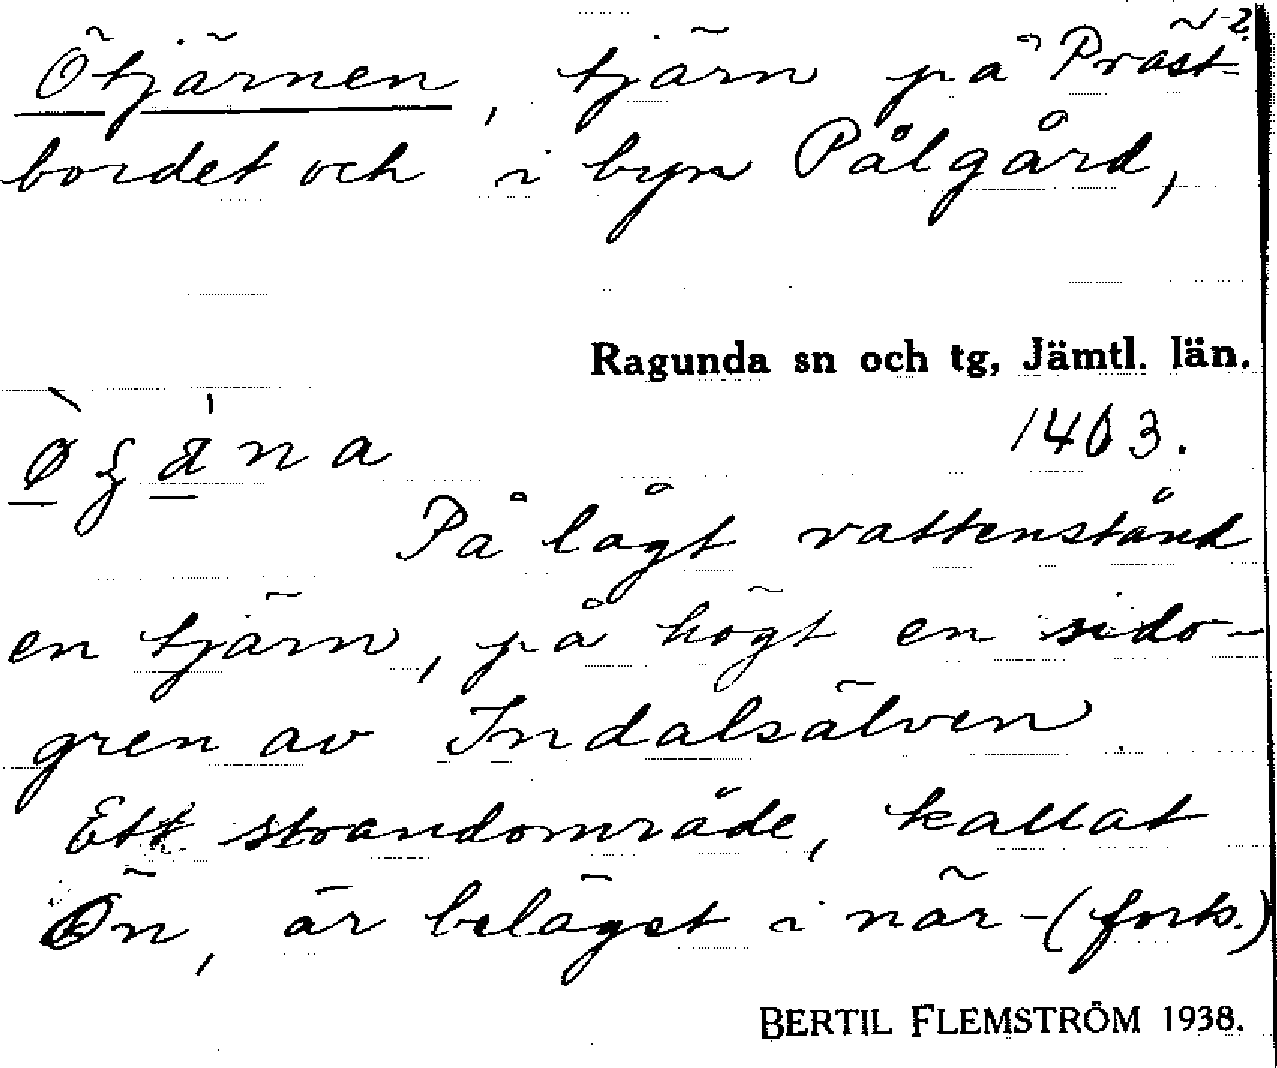 Ötjärnen, tjärn på Präst-
bordet och i byn Pålgård,
Ragunda sn och tg, Jämtl. län.
1403.
På lågt vattenstånd
en tjärn, på högt en sido-
gren av Indalsälven
Ett strandområde, kallat
Ön, är beläget i när- (forts.)
BERTIL FLEMSTRÖM 1938.